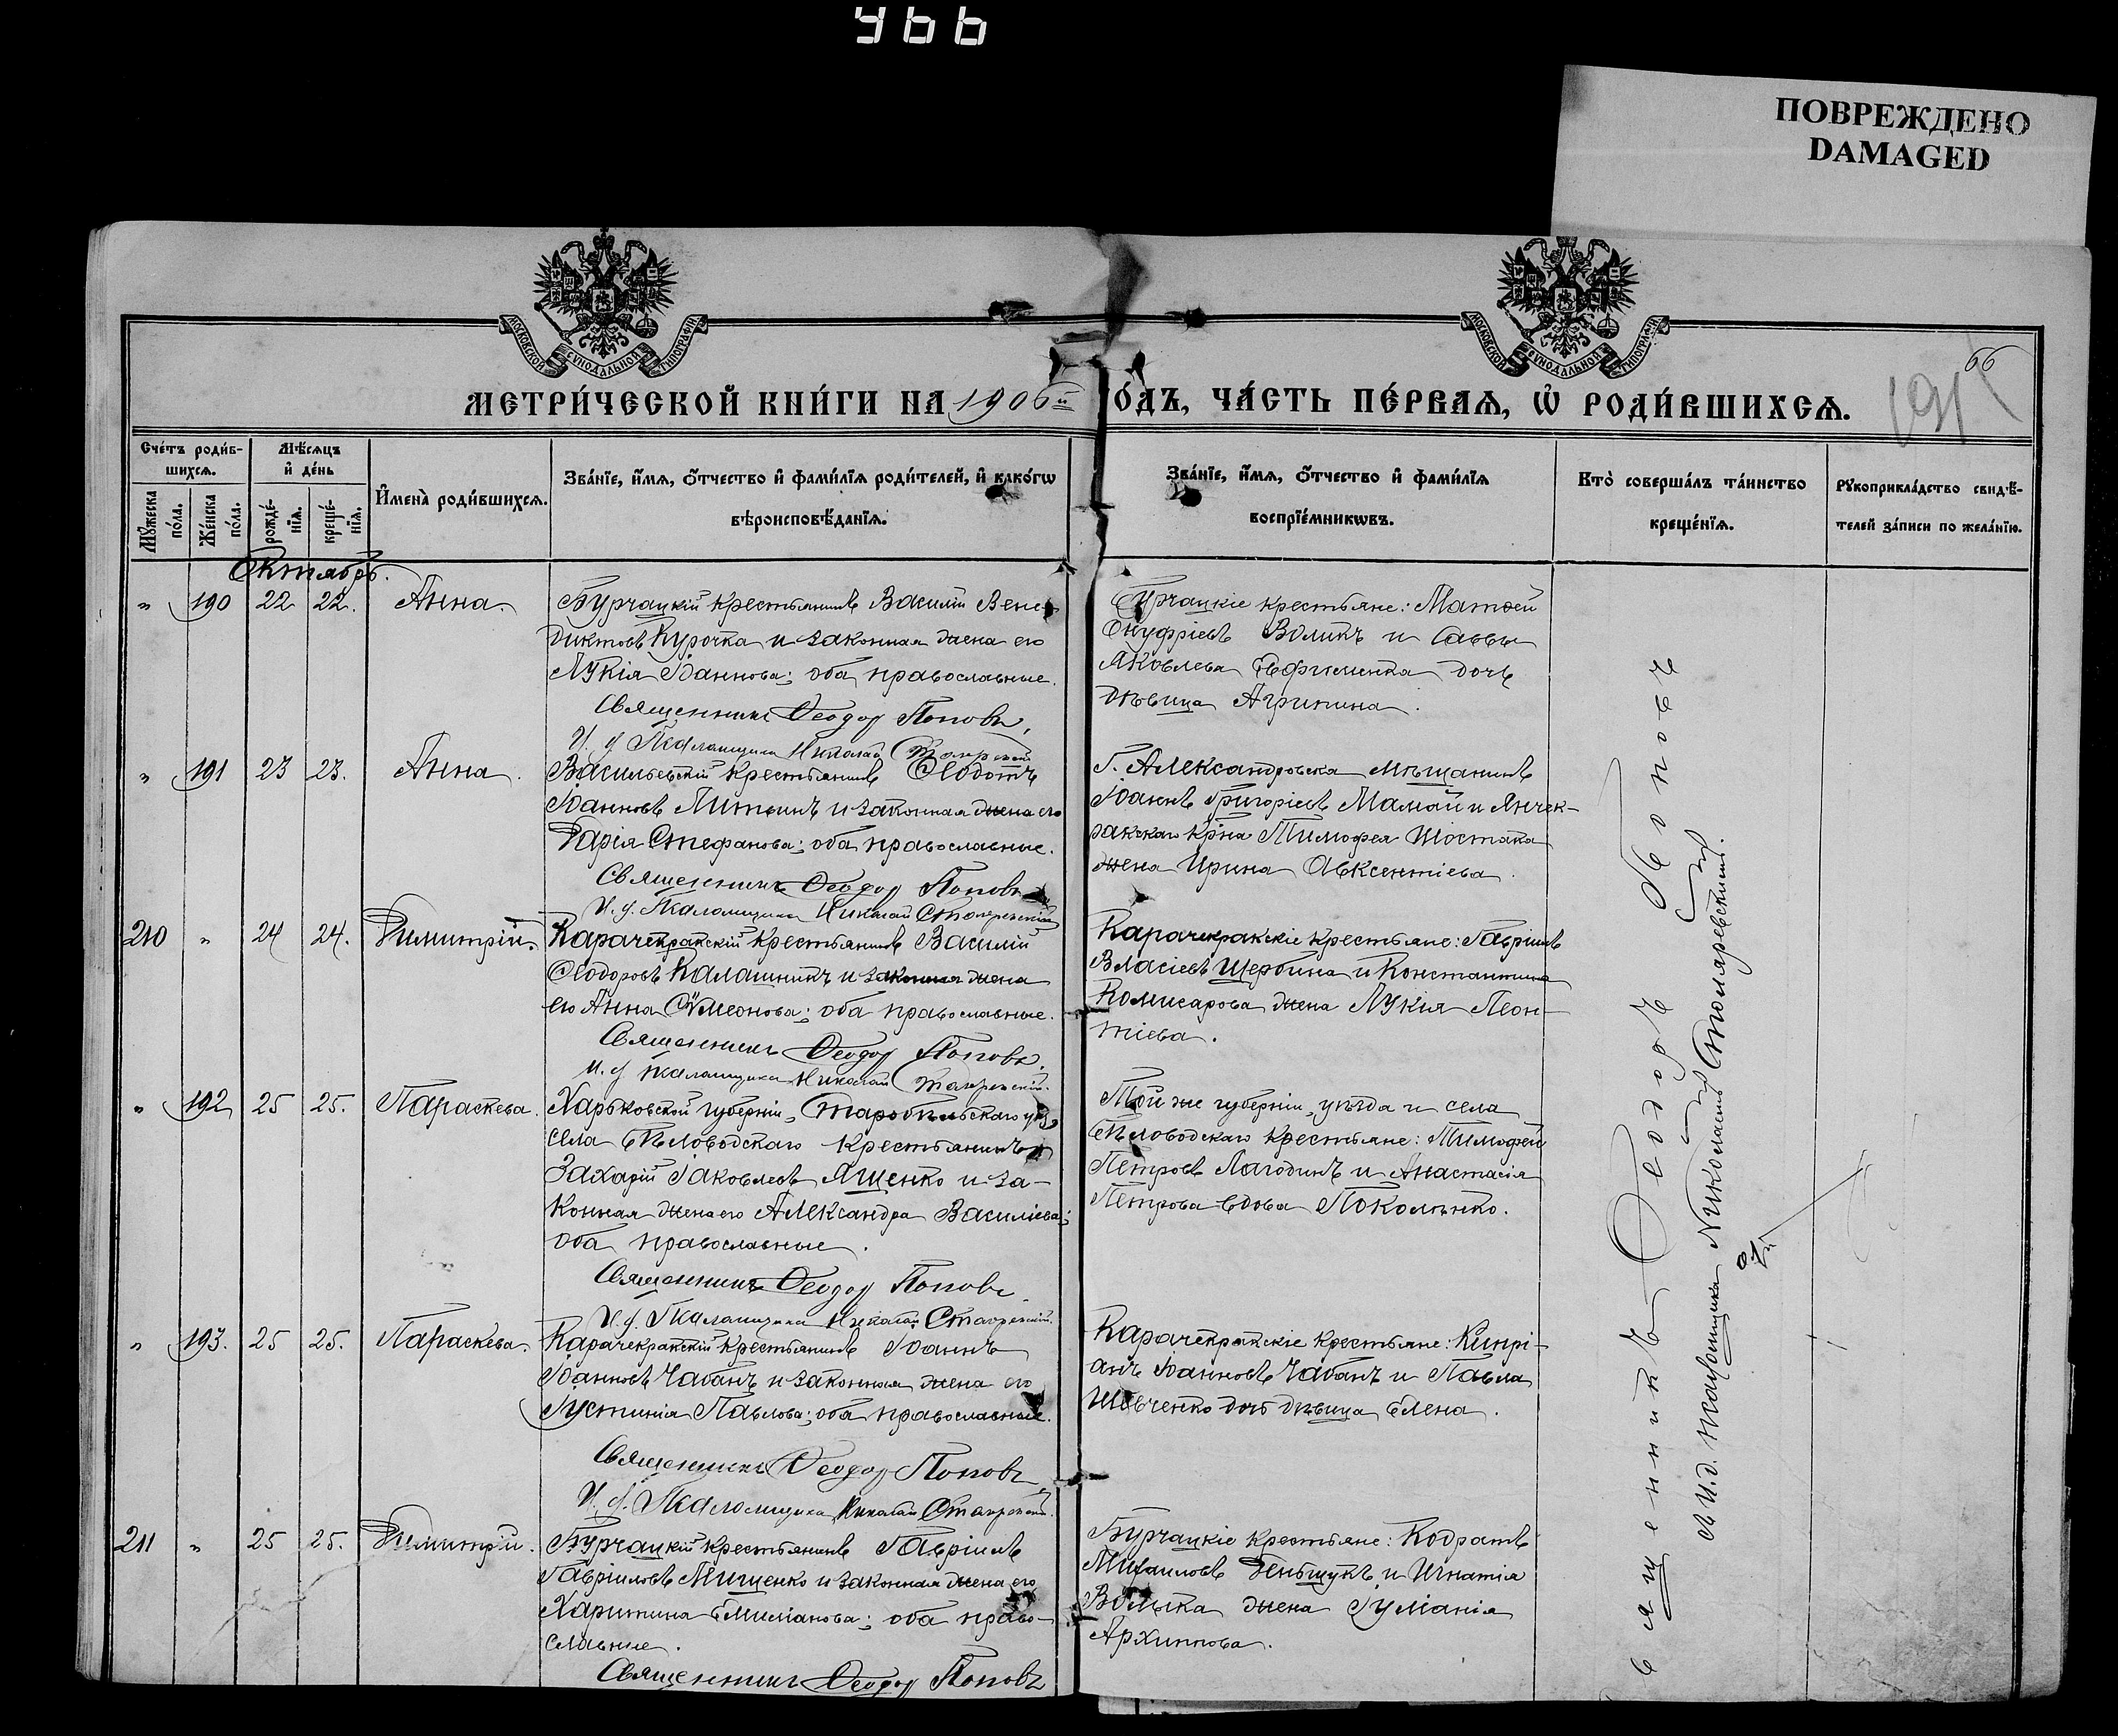 466
ПОВРЕЖДЕНО
DAMAGED
МОСКОВСКОЙ СУНОДАЛЬНОЙ ТИПОГРАФІИ
МОСКОВСКОЙ СУНОДАЛЬНОЙ ТИПОГРАФІИ
66
191
МЕТРИ́ЧЕСКОЙ КНИ́ГИ НА 1906й
О́ДЪ, ЧА́СТЬ ПЕ́РВАЯ, Ѡ҆ РОДИ́ВШИХСЯ.
Сче́тъ роди́в-
шихся.
Мѣ́сяцъ
и҆ де́нь
Мꙋ́жеска по́ла.
Же́нска по́ла.
рожде́-
нїя.
креще́-
нїя.
И҆мена̀ роди́вшихся.
Зва́нїе, и҆́мя, ѻ҆́тчество и҆ фами́лїя роди́телей, и҆ како́гѡ
вѣроисповѣ́данїя.
Зва́нїе, и҆́мя, ѻ҆́тчество и҆ фами́лїя
воспрїе́мникѡвъ.
Кто̀ соверша́лъ та́инство
креще́нїя.
Рꙋкоприкла́дство свидѣ́-
телей за́писи по жела́нїю.
Октябрь.
" 190 22 22. Анна.
Бурчацкій крестьянинъ Василій Вене-
диктовъ Курочка и законная жена его
Лукія Іоаннова; оба православные.
Священникъ Ѳеодоръ Поповъ,
И. д. Псаломщика Николай Столяревскій
Бурчацкіе крестьяне: Матѳей
Онуфріевъ Воликъ и Саввы
Яковлева Ефименка дочь
дѣвица Агрипина.
" 191 23 23. Анна.
Васильевскій крестьянинъ Ѳеодотъ
Іоанновъ Литвинъ и законная жена его
Дарія Стефанова; оба православные.
Священникъ Ѳеодоръ Поповъ
И. д. Псаломщика Николай Столяревскій
Г. Александровска мѣщанинъ
Іоаннъ Григоріевъ Мамай и Янчек-
ракскаго кр-на Тимофея Шостака
жена Ирина Авксентіева.
210 " 24 24. Димитрій.
Карачекракскій крестьянинъ Василій
Ѳеодоровъ Калашникъ и законная жена
его Анна Сѵмеонова; оба православные.
Священникъ Ѳеодоръ Поповъ.
И. д. псаломщика Николай Столяревскій.
Карачекракскіе крестьяне: Гавріилъ
Власіевъ Щербина и Константина
Комисарова жена Лукія Леон-
тіева.
" 192 25 25. Параскева.
Харьковской губерніи, Старобѣльскаго уѣз.
села Бѣловодскаго крестьянинъ
Захарій Іаковлевъ Ященко и за-
конная жена его Александра Василіева;
оба православные.
Священникъ Ѳеодоръ Поповъ.
И. д. Псаломщика Николай Столяревскій.
Той же губерніи, уѣзда и села
Бѣловодскаго крестьяне: Тимофей
Петровъ Лагодинъ и Анастасія
Петрова вдова
" 193. 25 25. Параскева.
Карачекракскій крестьянинъ Іоаннъ
Іоанновъ Чабанъ и законная жена его
Іустинія Павлова; оба православные.
Священникъ Ѳеодоръ Поповъ
И. д. Псаломщика Николай Столяревскій.
Карачекракскіе крестьяне: Кипрі-
анъ Іоанновъ Чабанъ и Павла
Шевченко дочь дѣвица Елена.
211 " 25 25. Димитрій.
Бурчацкій крестьянинъ Гавріилъ
Гавріиловъ Мищенко и законная жена его
Харитина Емиліанова; оба право-
славные.
Священникъ Ѳеодоръ Поповъ
Бурчацкіе крестьяне: Кодратъ
Михаиловъ и Игнатія
Волыка жена Іуліанія
Архиппова.
Священникъ Ѳеодоръ Поповъ
И. д. псаломщика Николай Столяревскій.